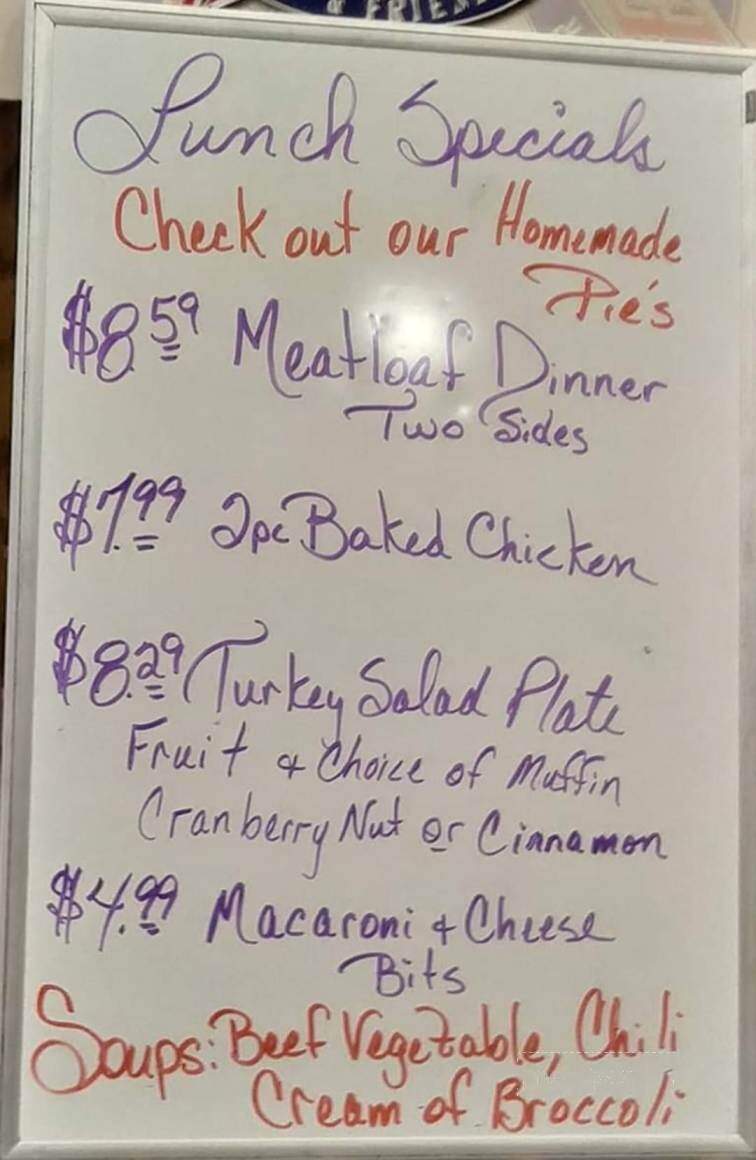 & FRIE
Lunch Specials
Check out our Homemade
Pie's
$8.59 Meatloaf Dinner
Two Sides
$7.99 2pc Baked Chicken
$8.29 Turkey Salad Plate
Fruit & Choice of Muffin
Cranberry Nut or Cinnamon
$4.99 Macaroni & Cheese
Bits
Soups: Beef Vegetable, Chili
Cream of Broccoli